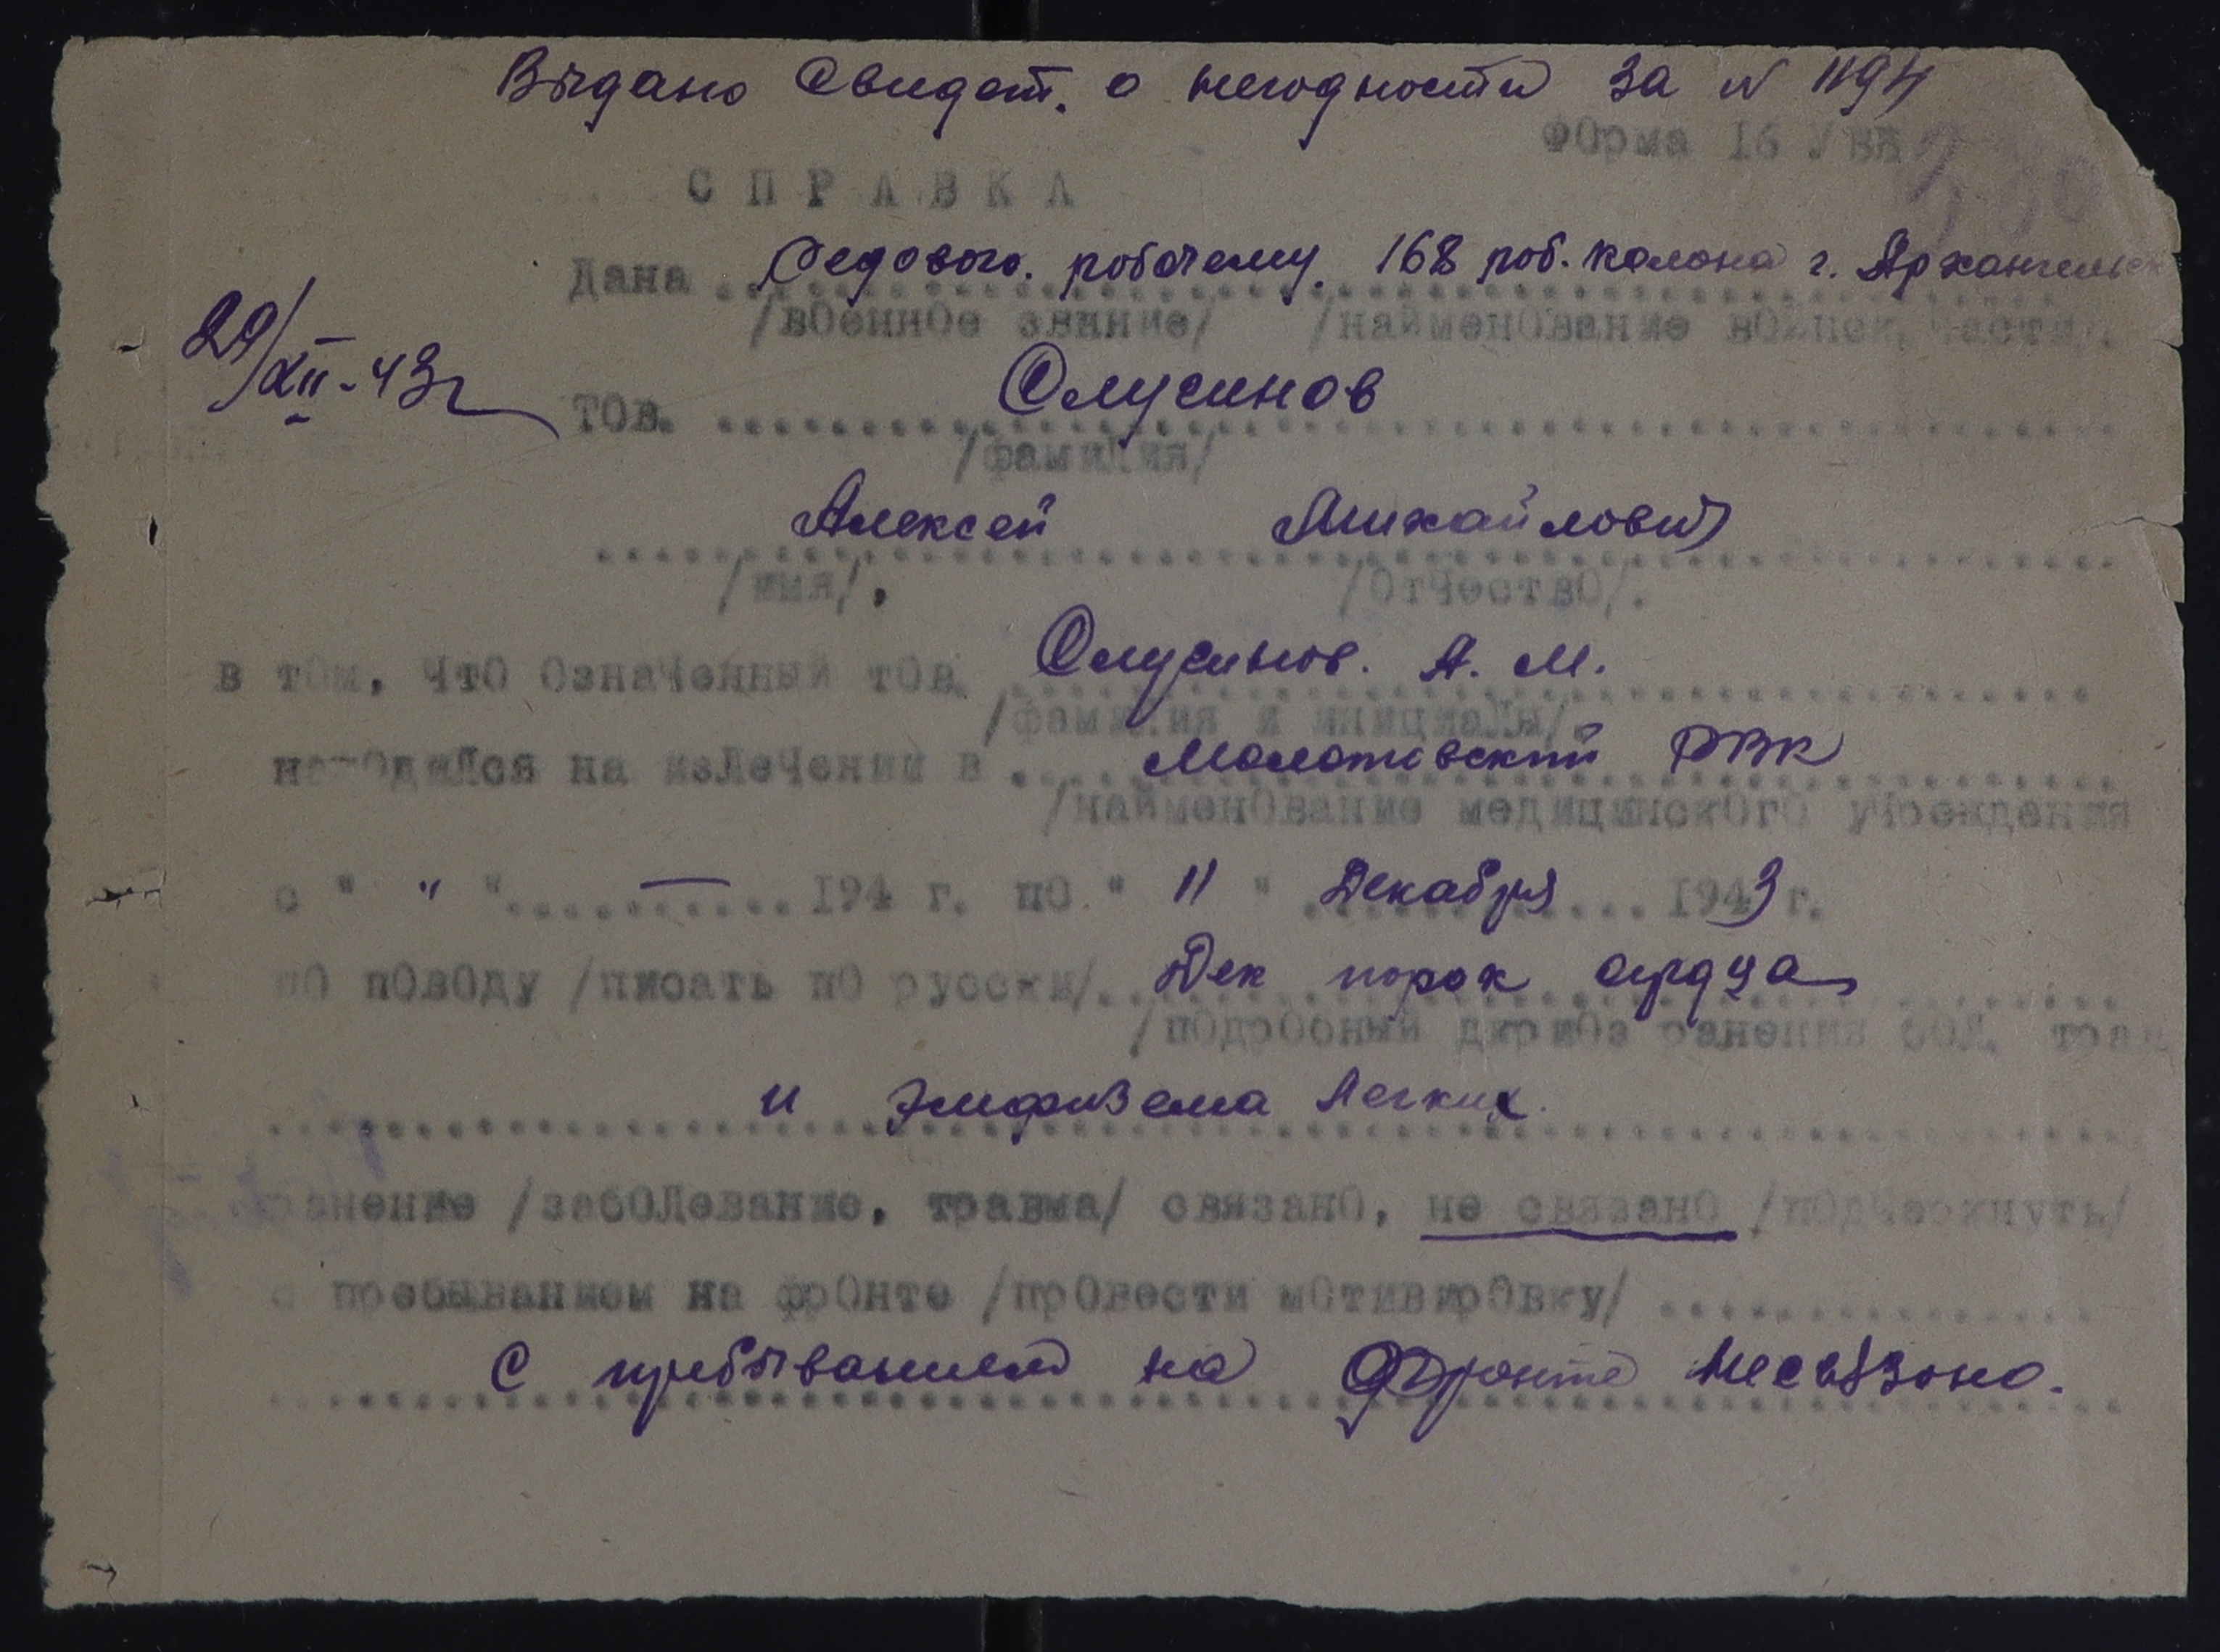 Выдано Свидет. о негодности за № 1194
Форма 16 УВВ
СПРАВКА
Дана Редового. робочему. 168 роб. колона г. Архангельск
/военное звание/ /найменование войнск, части/.
29/XII-43г
Тов. Слусинов
/фамилия/
Алексей Михайлович
/имя/, /отчество/.
в том, что означенный тов. Слусинов. А. М.
/фамилия и инициалы/.
находился на излечении в Молотовский РВК
/найменование медицинского учреждения
с " " " — 194 г. по " 11 " Декабря 1943 г.
по поводу /писать по русски/. Дек порок сердца
/подробный диагноз ранения бол. трав
и Эмфизема Легких.
ранение /заболевание, травма/ связано, не связано /подчеркнуть/
с пребыванием на фронте /провести мотивировку/
С пребыванием на Фронте Несвязоно.